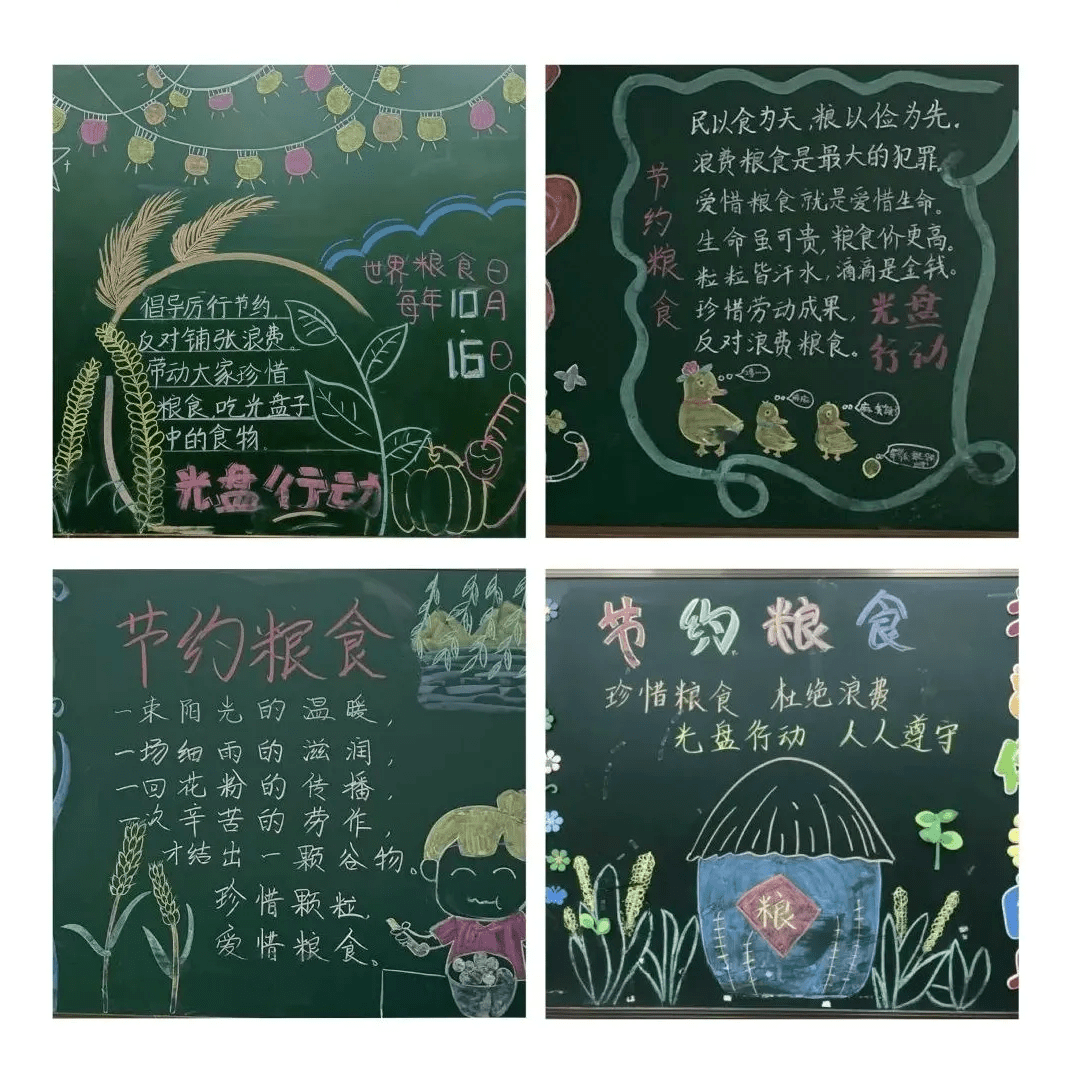 世界粮食日
每年10月
16日
倡导厉行节约,
反对铺张浪费。
带动大家珍惜
粮食,吃光盘子
中的食物.
光盘行动
节约粮食
民以食为天,粮以俭为先。
浪费粮食是最大的犯罪。
爱惜粮食就是爱惜生命。
生命虽可贵,粮食价更高。
粒粒皆汗水,滴滴是金钱。
珍惜劳动成果,
反对浪费粮食。
光盘
行动
节约粮食
一束阳光的温暖,
一场细雨的滋润,
一回花粉的传播,
一次辛苦的劳作,
才结出一颗谷物。
珍惜颗粒,
爱惜粮食。
节约粮食
珍惜粮食 杜绝浪费
光盘行动 人人遵守
粮